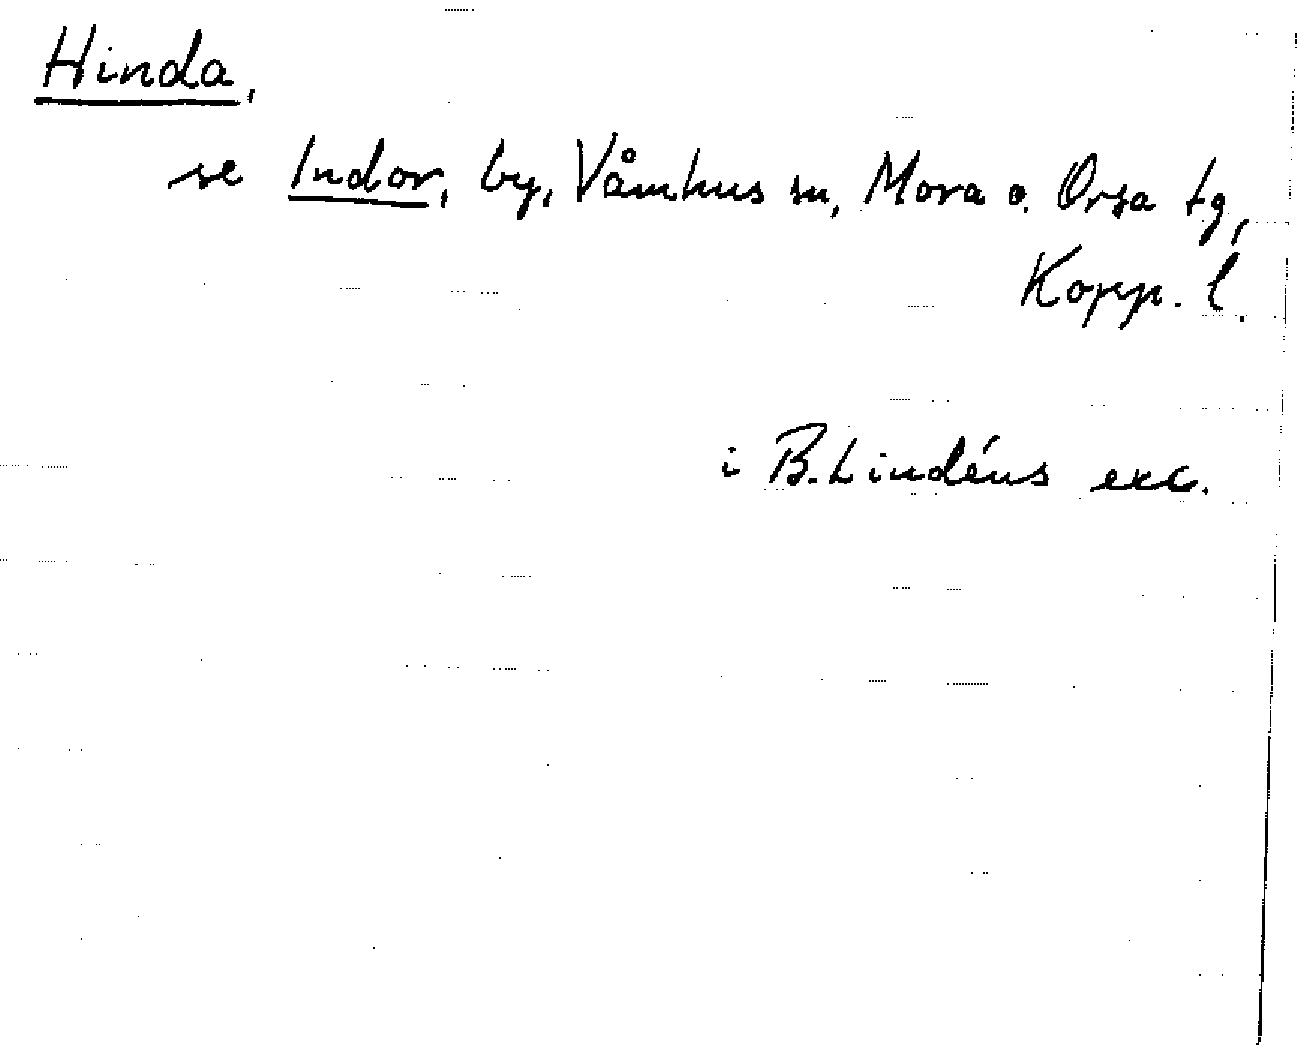 Hinda,
se Indor, by, Våmhus sn, Mora o. Orsa tg,
Kopp. l.
i B. Lindéns exc.